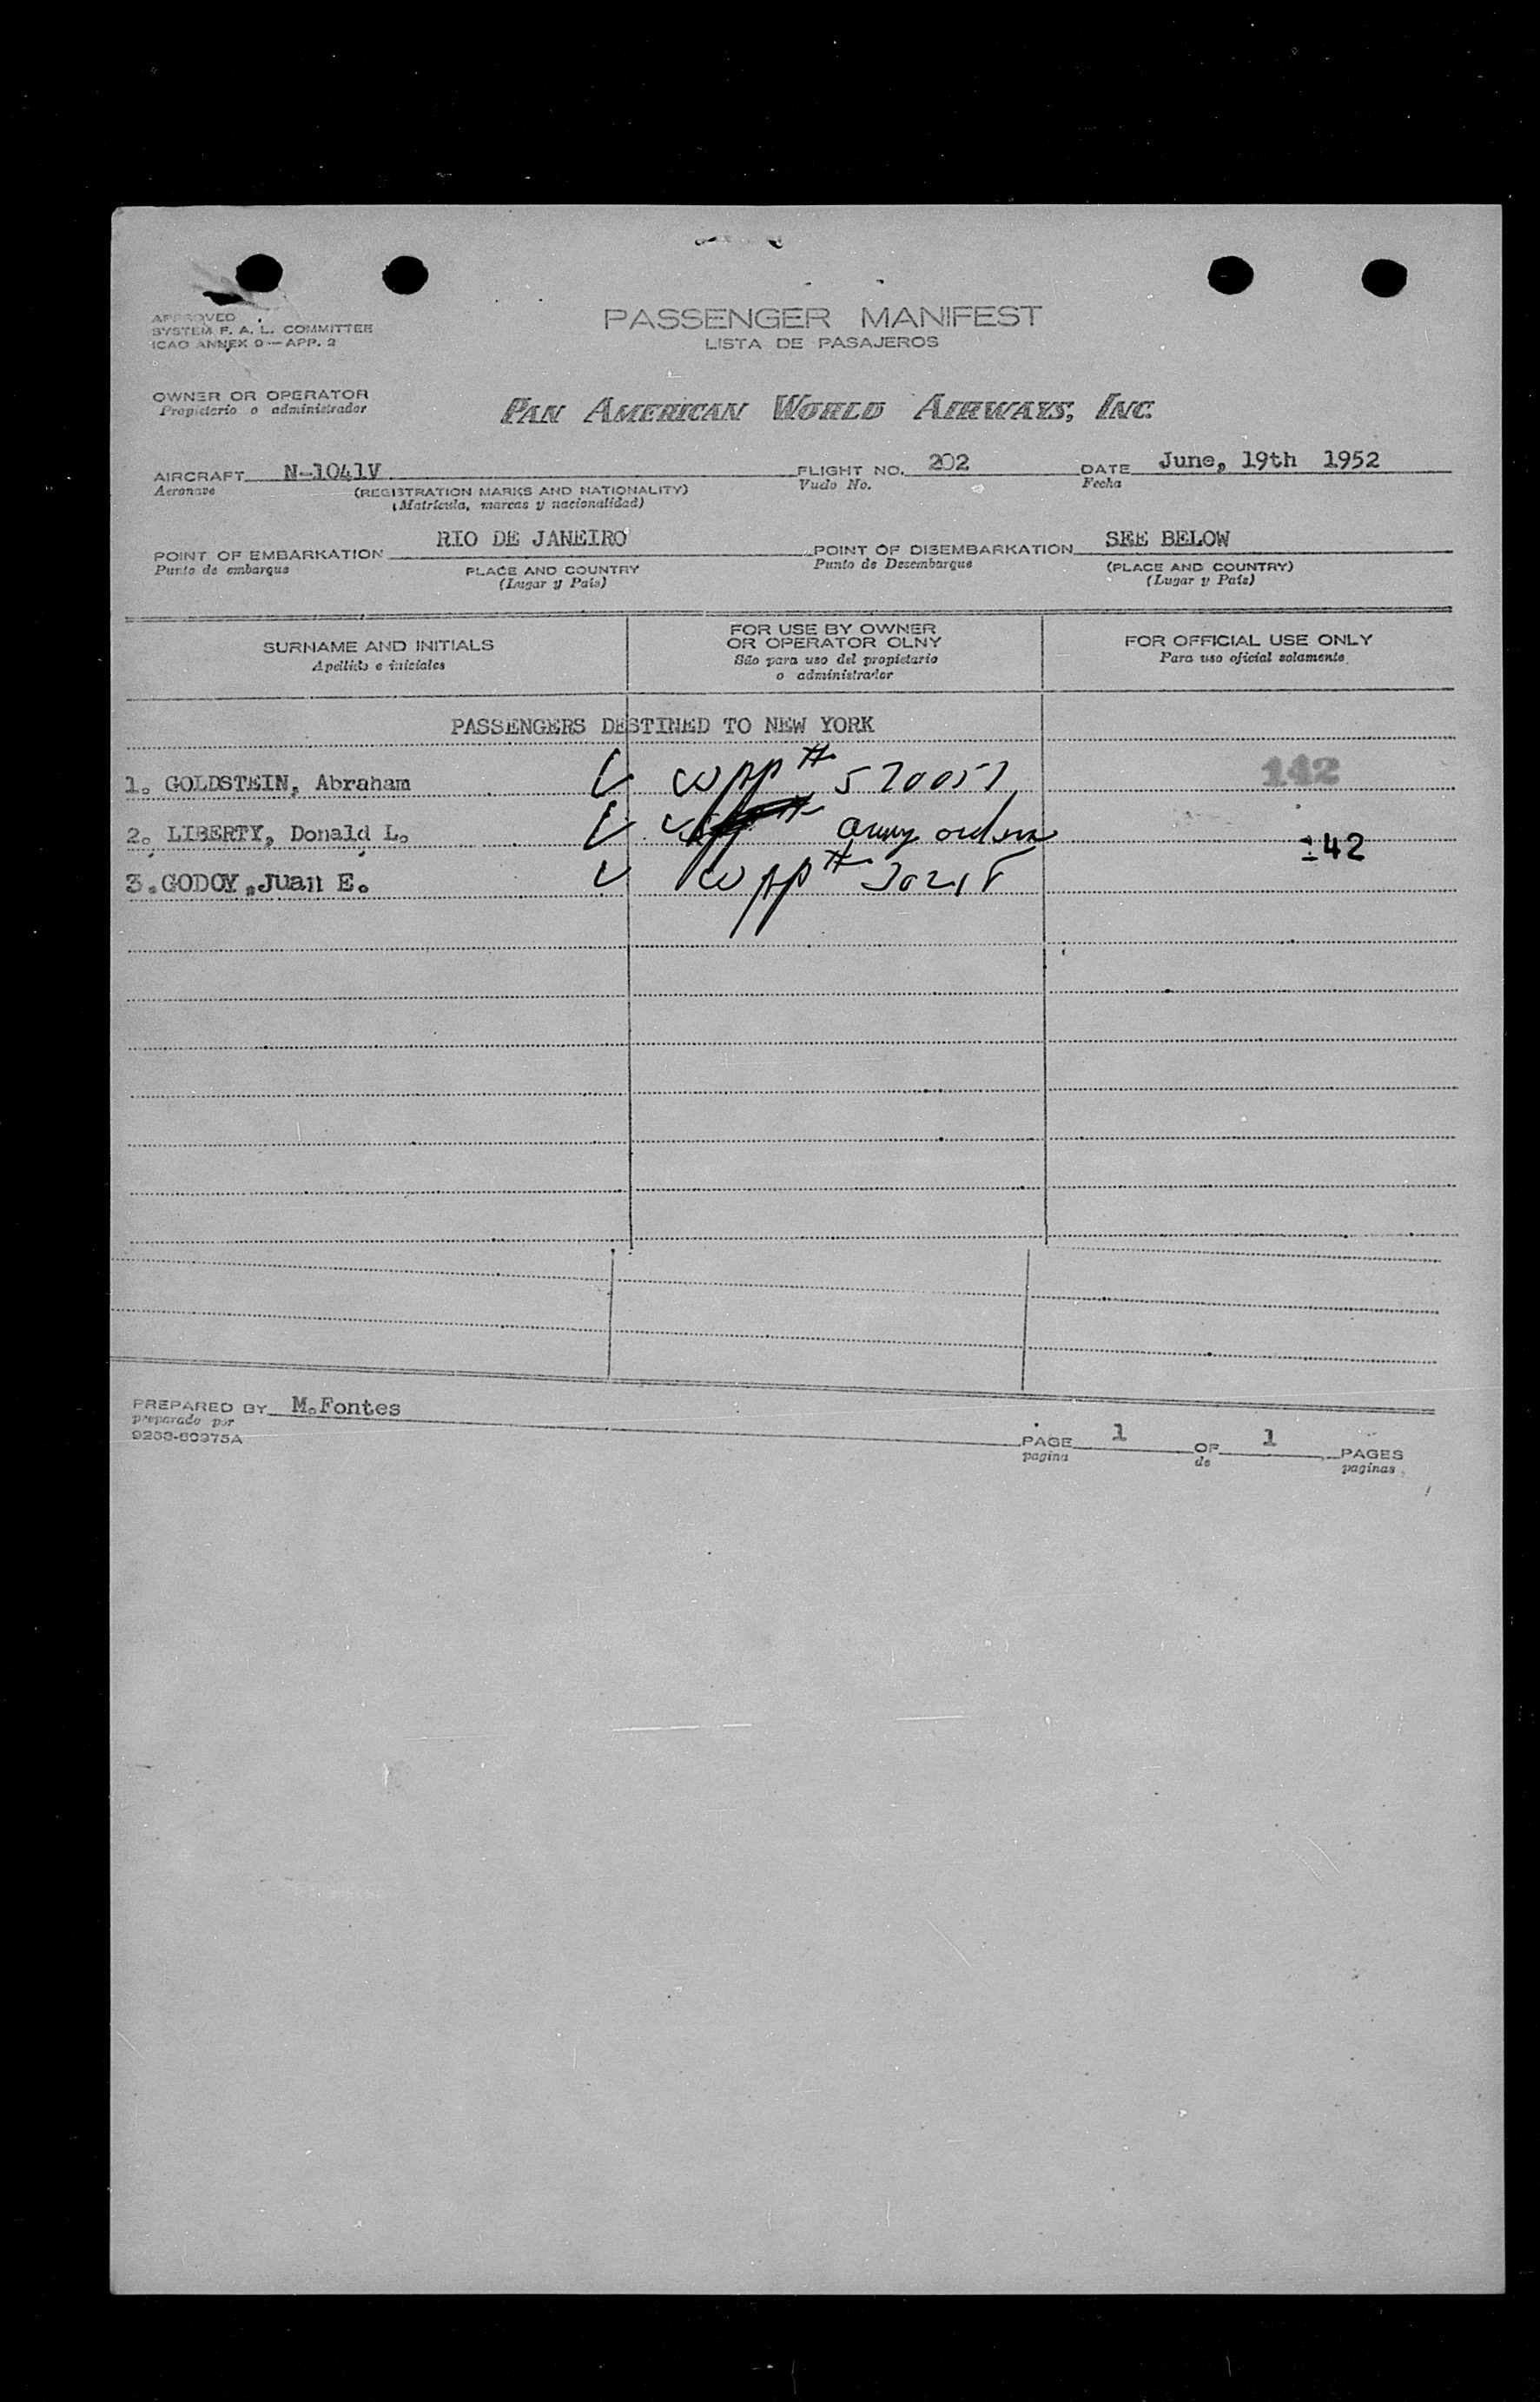 APPROVED
SYSTEM F. A. L. COMMITTEE
ICAO ANNEX 9 — APP. 2
PASSENGER MANIFEST
LISTA DE PASAJEROS
OWNER OR OPERATOR
Propietario o administrador
PAN AMERICAN WORLD AIRWAYS, INC.
AIRCRAFT N-1041V FLIGHT NO. 202 DATE June, 19th 1952
Aeronave (REGISTRATION MARKS AND NATIONALITY) Vuelo No. Fecha
(Matrícula, marcas y nacionalidad)
POINT OF EMBARKATION RIO DE JANEIRO POINT OF DISEMBARKATION SEE BELOW
Punto de embarque PLACE AND COUNTRY Punto de Desembarque (PLACE AND COUNTRY)
(Lugar y País) (Lugar y País)
SURNAME AND INITIALS
Apellido e iniciales
FOR USE BY OWNER
OR OPERATOR OLNY
São para uso del propietario
o administrador
FOR OFFICIAL USE ONLY
Para uso oficial solamente
PASSENGERS DESTINED TO NEW YORK
1. GOLDSTEIN, Abraham W PP # 142
2. LIBERTY, Donald L. army orders 142
3. GODOY, Juan E. W PP #
PREPARED BY M. Fontes
preparado por
PAGE 1 OF 1 PAGES
pagina de paginas